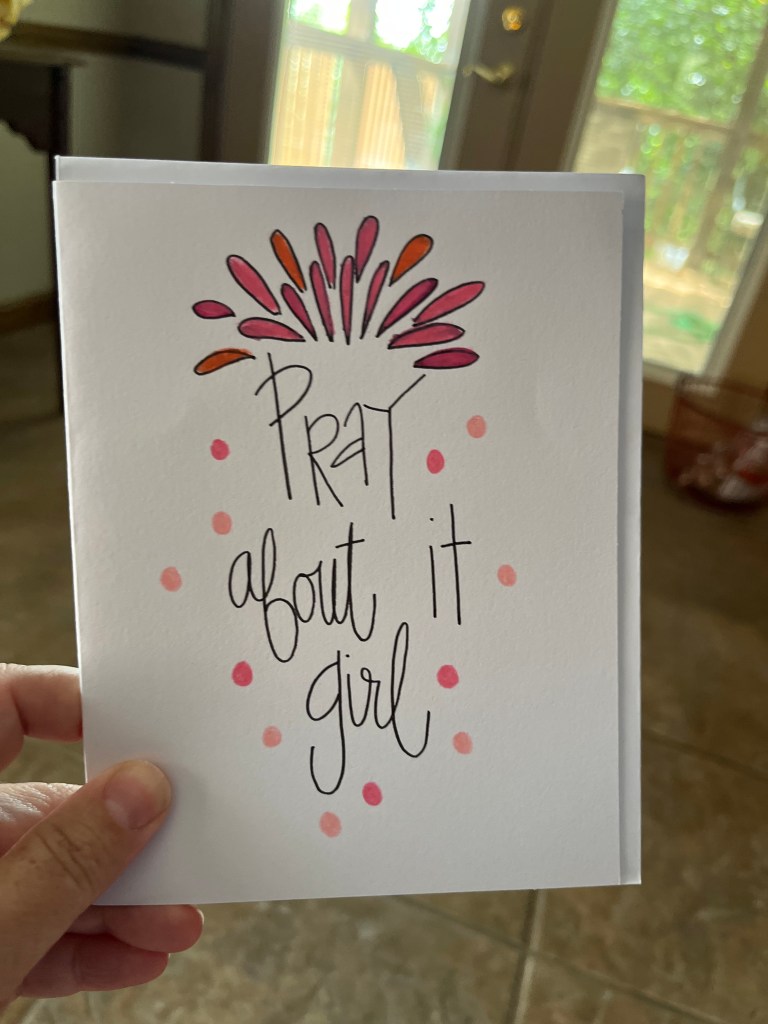 PRAY
about it
girl